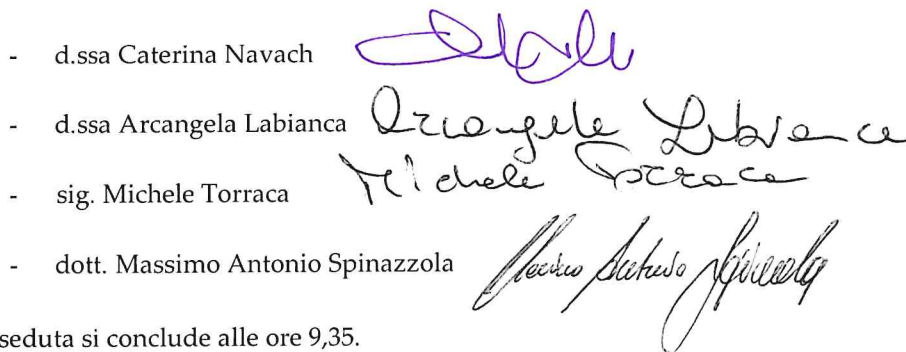 - d.ssa Caterina Navach
- d.ssa Arcangela Labianca Arcangela Labianca
- sig. Michele Torraca Michele Torraca
- dott. Massimo Antonio Spinazzola Massimo Antonio Spinazzola
seduta si conclude alle ore 9,35.